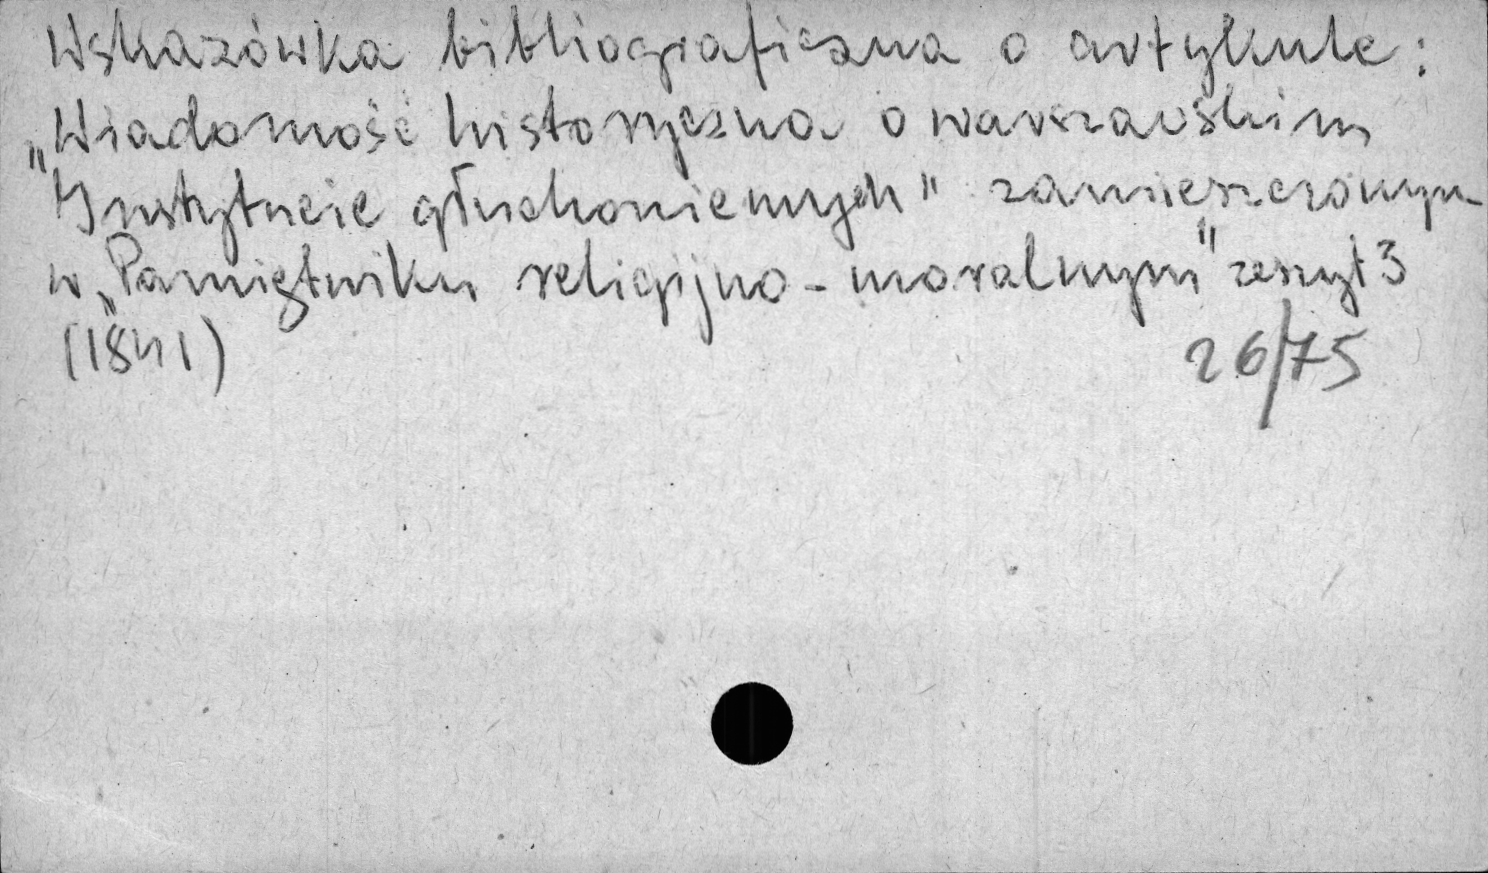 Wskazówka bibliograficzna o artykule:
„Wiadomość historyczna o warszawskim
Instytucie głuchoniemych" zamieszczonym
w „Pamiętniku religijno-moralnym" zeszyt 3
(1841)
26/75